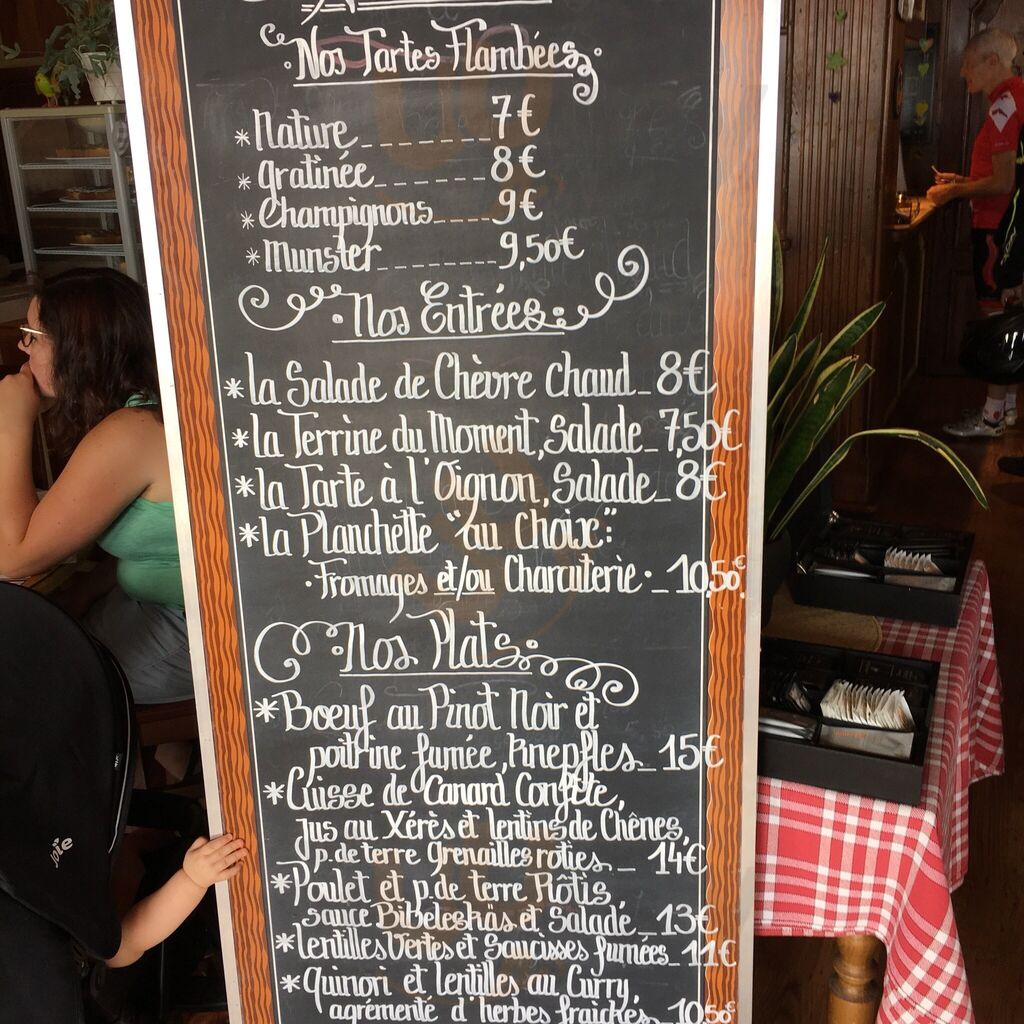 Nos Tartes Flambées
*Nature_______7€
*gratinée______8€
*Champignons____9€
*Munster________9,50€
Nos Entrées
*la Salade de Chèvre Chaud_8€
*la Terrine du Moment, Salade_7,50€
*la Tarte à l'Oignon, Salade_8€
*la Planchette "au Choix":
•Fromages et/ou Charcuterie•_10,50€
•Nos Plats
*Boeuf au Pinot Noir et
poitrine fumée, Knepfles_15€
*Cuisse de Canard Confite,
jus au Xérès et lentins de Chênes,
p.de terre Grenailles roties_14€
*Poulet et p.de terre Rôtis,
sauce Bibeleskäs et Salade_13€
*lentilles Vertes et Saucisses fumées_11€
*quinori et lentilles au Curry,
agrémenté d'herbes fraichés_10,50€
Joie